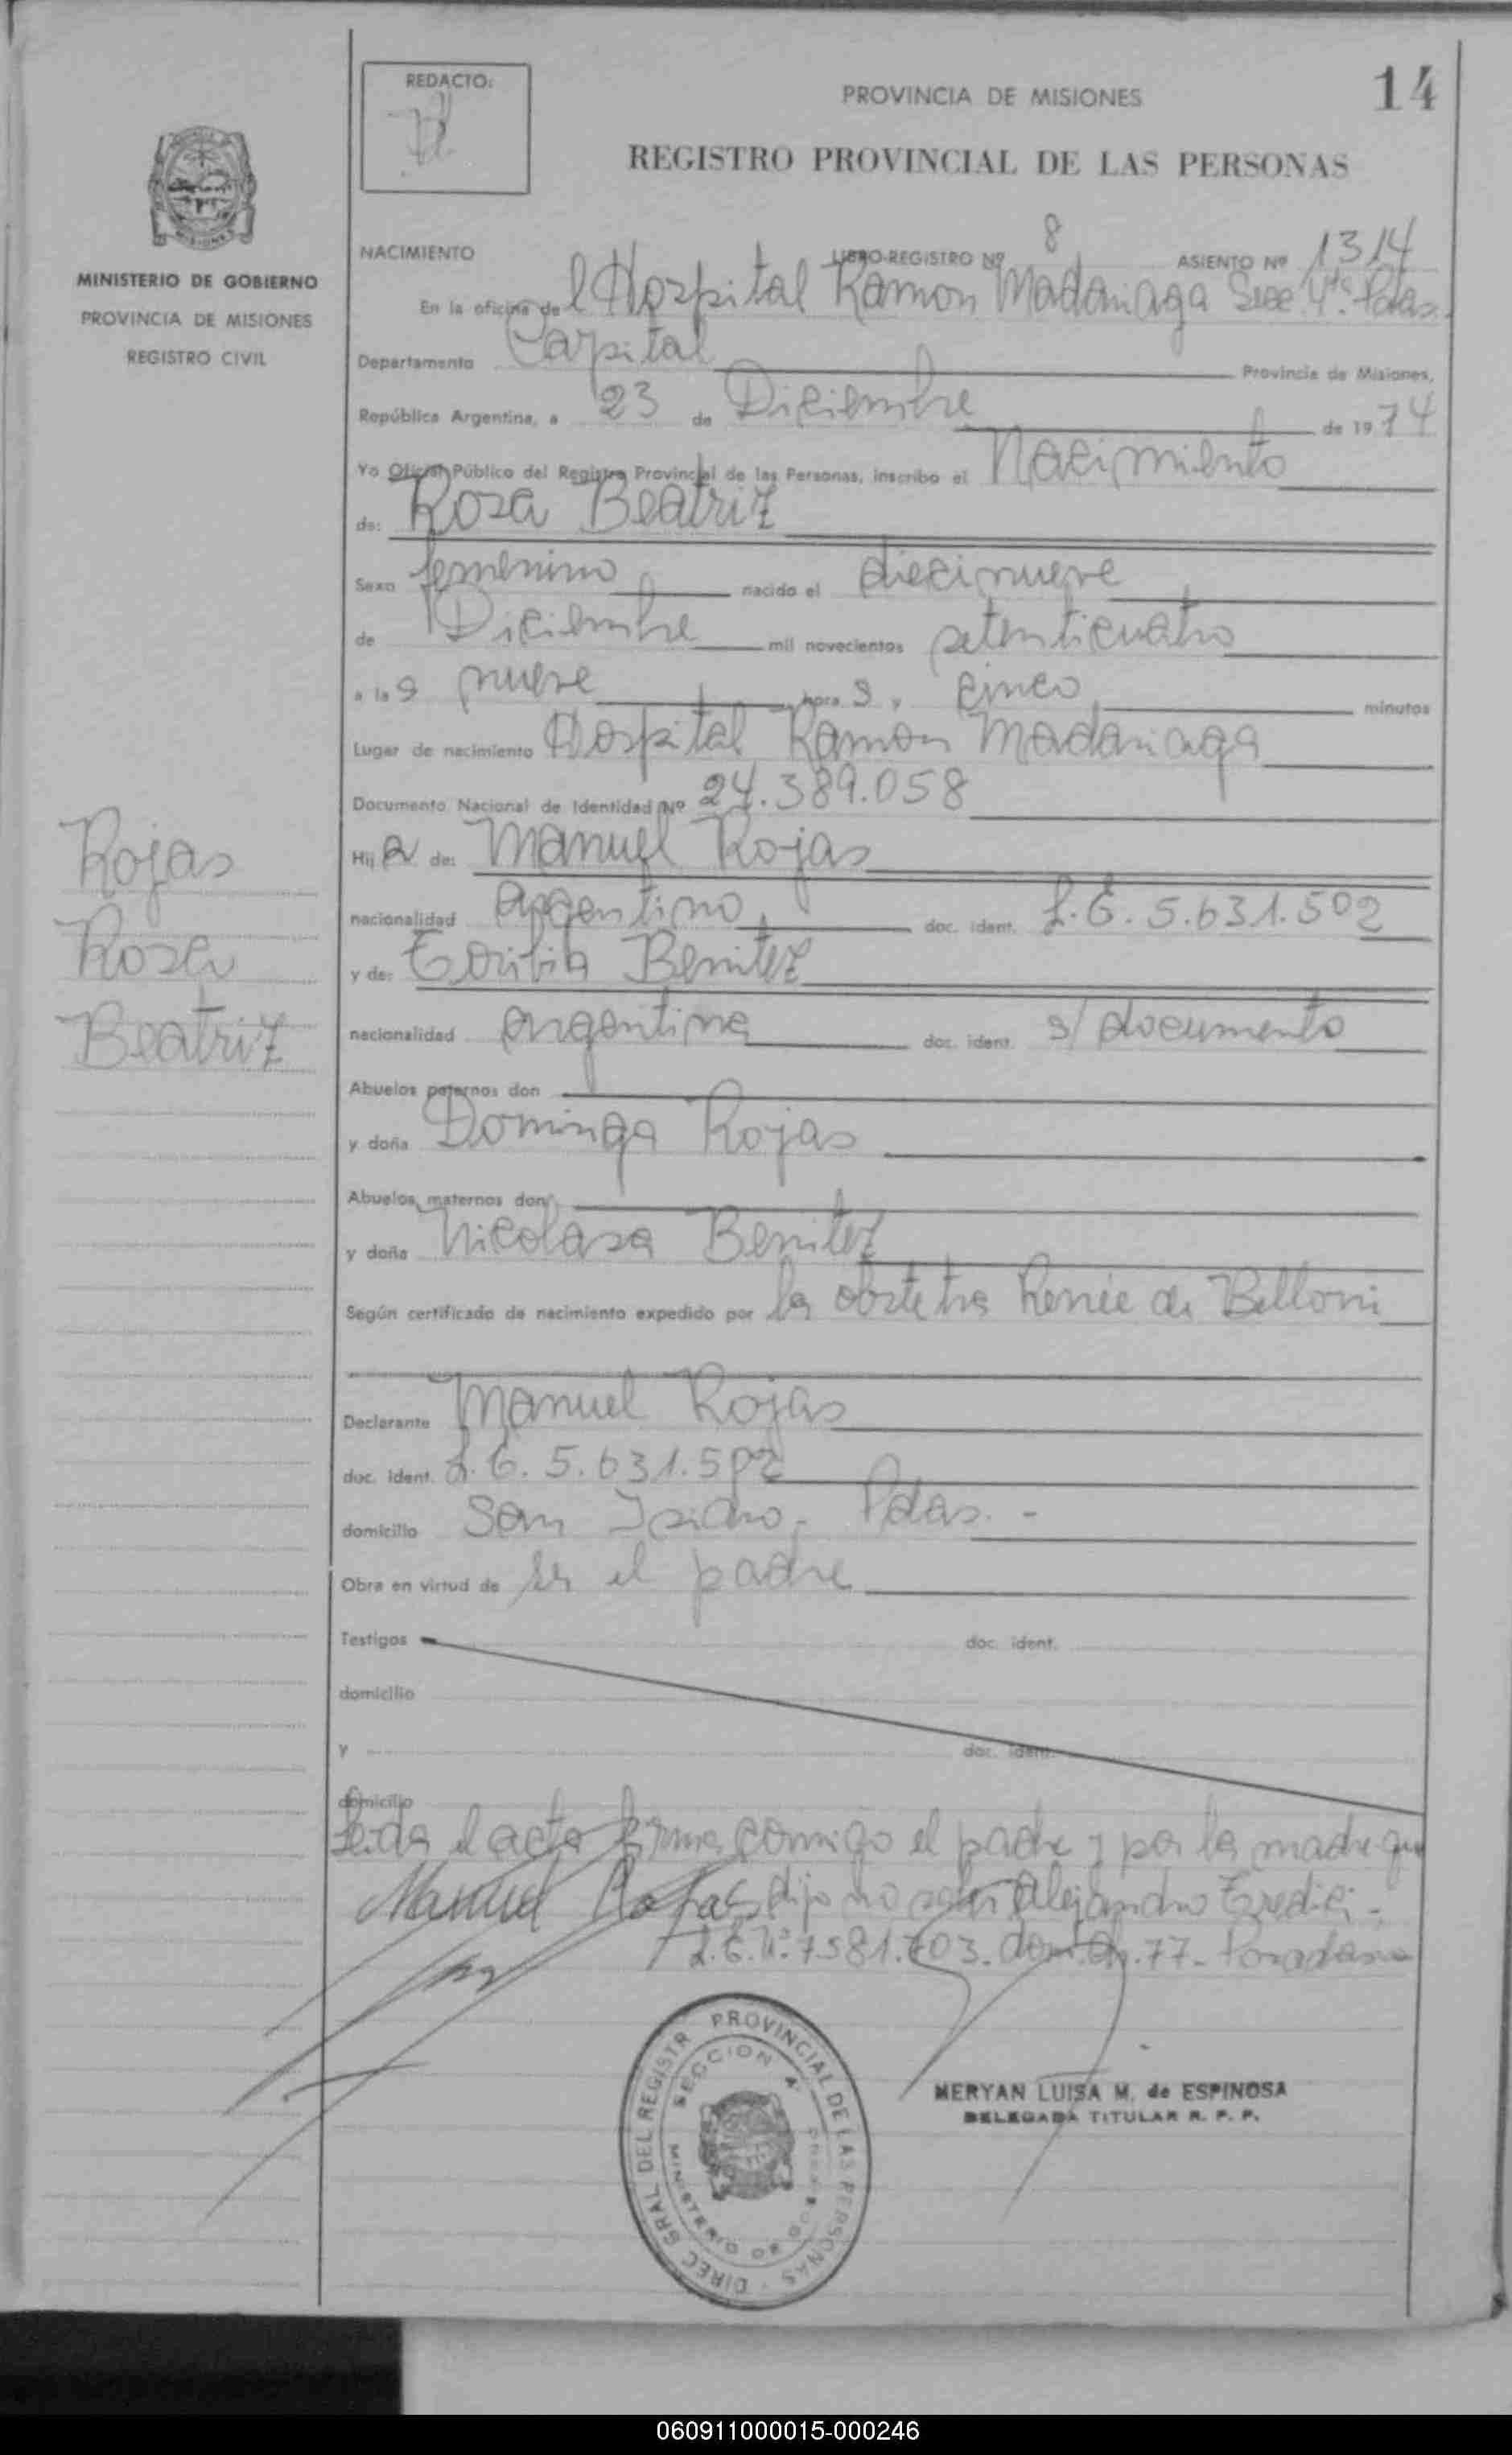 14
REDACTO:
PROVINCIA DE MISIONES
REGISTRO PROVINCIAL DE LAS PERSONAS
MINISTERIO DE GOBIERNO
PROVINCIA DE MISIONES
REGISTRO CIVIL
NACIMIENTO LIBRO-REGISTRO Nº 8 ASIENTO Nº 1314
En la oficina de l Hospital Ramon Madariaga Secc. 4ta. Pdas.
Departamento Capital Provincia de Misiones,
República Argentina, a 23 de Diciembre de 1974
Yo Oficial Público del Registro Provincial de las Personas, inscribo el Nacimiento
de: Rosa Beatriz
Sexo femenino nacido el diecinueve
de Diciembre mil novecientos setenticuatro
a las nueve horas y cinco minutos
Lugar de nacimiento Hospital Ramon Madariaga
Documento Nacional de Identidad Nº 24.389.058
Hija de: Manuel Rojas
nacionalidad argentino doc. ident. L.E. 5.631.502
y de: Toribia Benitez
nacionalidad argentina doc. ident. s/documento
Abuelos paternos don
y doña Dominga Rojas
Abuelos maternos don
y doña Nicolasa Benitez
Según certificado de nacimiento expedido por la obstetra Renée de Belloni
Declarante Manuel Rojas
doc. ident. L.E. 5.631.502
domicilio San Isidro - Pdas. -
Obra en virtud de ser el padre
Testigos doc. ident.
domicilio
y doc. ident.
domicilio
Leida el acta firma conmigo el padre y por la madre que
Manuel Rojas dijo no saber Alejandro
L.E. Nº 7581.703. dom. Ch. 77 - Posadas
Rojas
Rosa
Beatriz
DIREC. GRAL DEL REGISTR PROVINCIAL DE LAS PERSONAS
SECCION 4
MINISTERIO DE GOB
MERYAN LUISA M. de ESPINOSA
DELEGADA TITULAR R. P. P.
060911000015-000246